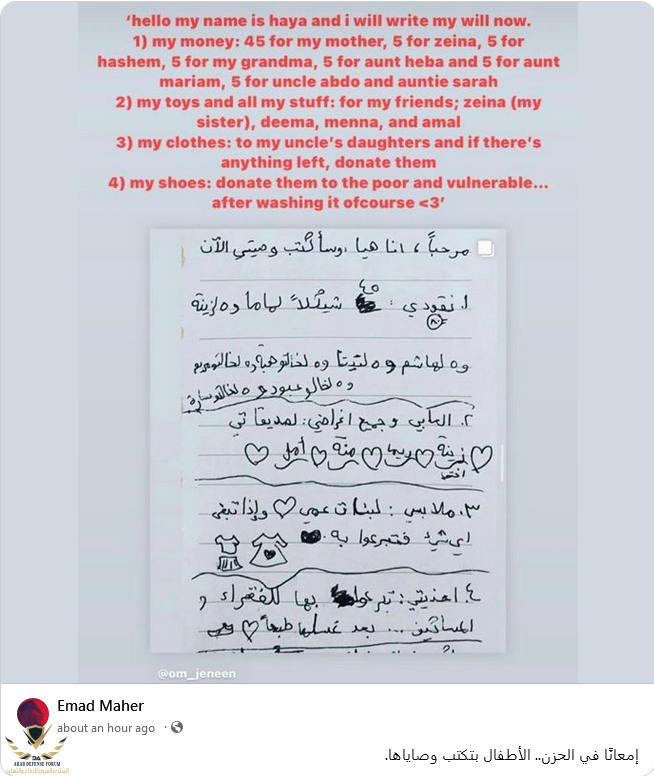 ‘hello my name is haya and i will write my will now.
1) my money: 45 for my mother, 5 for zeina, 5 for
hashem, 5 for my grandma, 5 for aunt heba and 5 for aunt
mariam, 5 for uncle abdo and auntie sarah
2) my toys and all my stuff: for my friends; zeina (my
sister), deema, menna, and amal
3) my clothes: to my uncle’s daughters and if there’s
anything left, donate them
4) my shoes: donate them to the poor and vulnerable...
after washing it ofcourse <3’
مرحباً ، انا هيا ،وسأكتب وصيتي الآن
١. نقودي : ٤٥ شيكلاً لماما و ٥ لزينة
٨٠
و ٥ لهاشم و ٥ لتيتا و ٥ لخالتو هبة و ٥ لخالتو مريم
و ٥ لخالو عبود و ٥ لخالتو سارة
٢. العابي و جميع اغراضي: لصديقاتي
زينة ديما منة أمل
اختي
٣. ملابسي : لبنات عمي وإذا تبقى
اي شيء فتبرعوا به
٤. احذيتي: تبرعوا بها للفقراء و
المساكين ... بعد غسلها طبعاً
@om_jeneen
Emad Maher
about an hour ago ·
إمعانًا في الحزن.. الأطفال بتكتب وصاياها.
DA
ARAB DEFENSE FORUM
المنتدى العربي للدفاع والتسليح